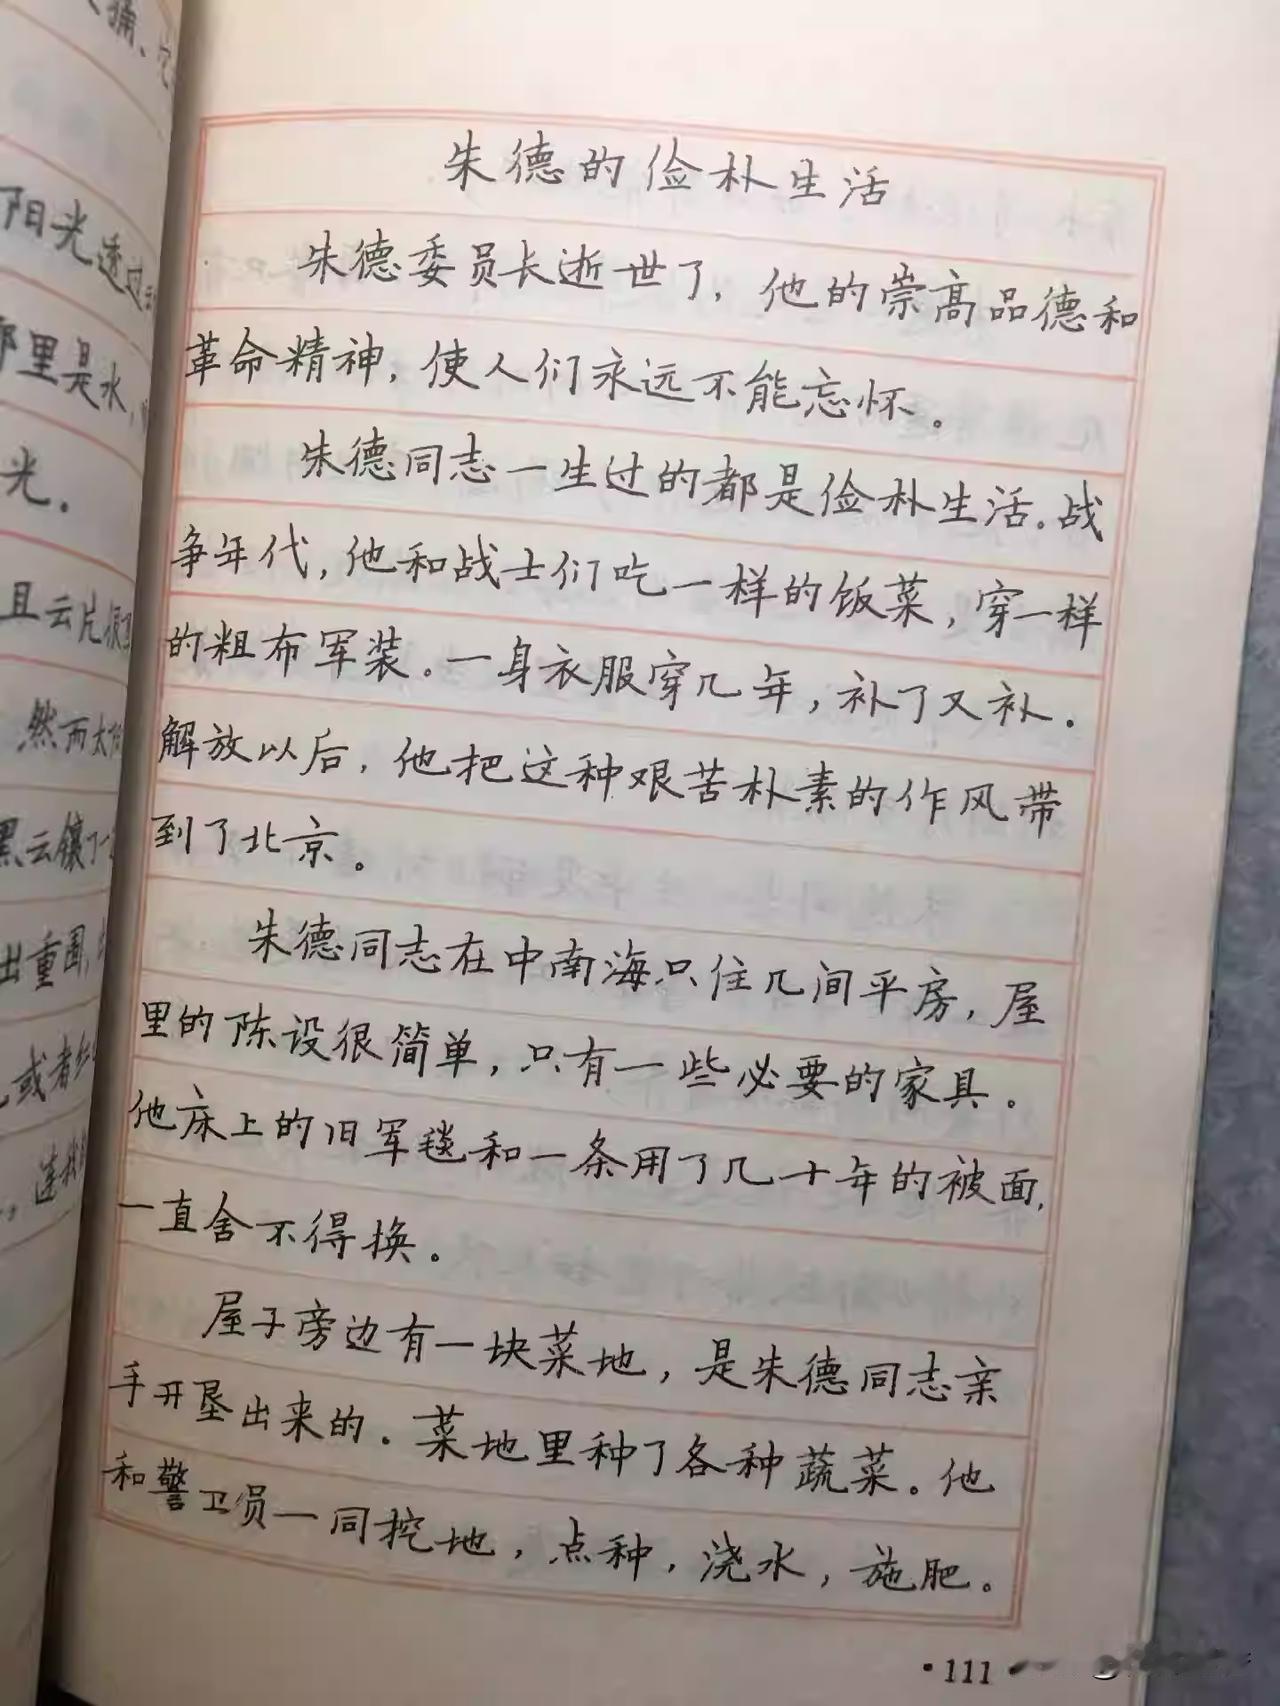 阳光透过
那里是水,
光.
且云片很
然而太阳
黑云镶了一
出重围,
或者红
连我
朱德的俭朴生活
朱德委员长逝世了,他的崇高品德和
革命精神,使人们永远不能忘怀。
朱德同志一生过的都是俭朴生活。战
争年代,他和战士们吃一样的饭菜,穿一样
的粗布军装。一身衣服穿几年,补了又补.
解放以后,他把这种艰苦朴素的作风带
到了北京。
朱德同志在中南海只住几间平房,屋
里的陈设很简单,只有一些必要的家具。
他床上的旧军毯和一条用了几十年的被面,
一直舍不得换。
屋子旁边有一块菜地,是朱德同志亲
手开垦出来的.菜地里种了各种蔬菜。他
和警卫员一同挖地,点种,浇水,施肥。
·111